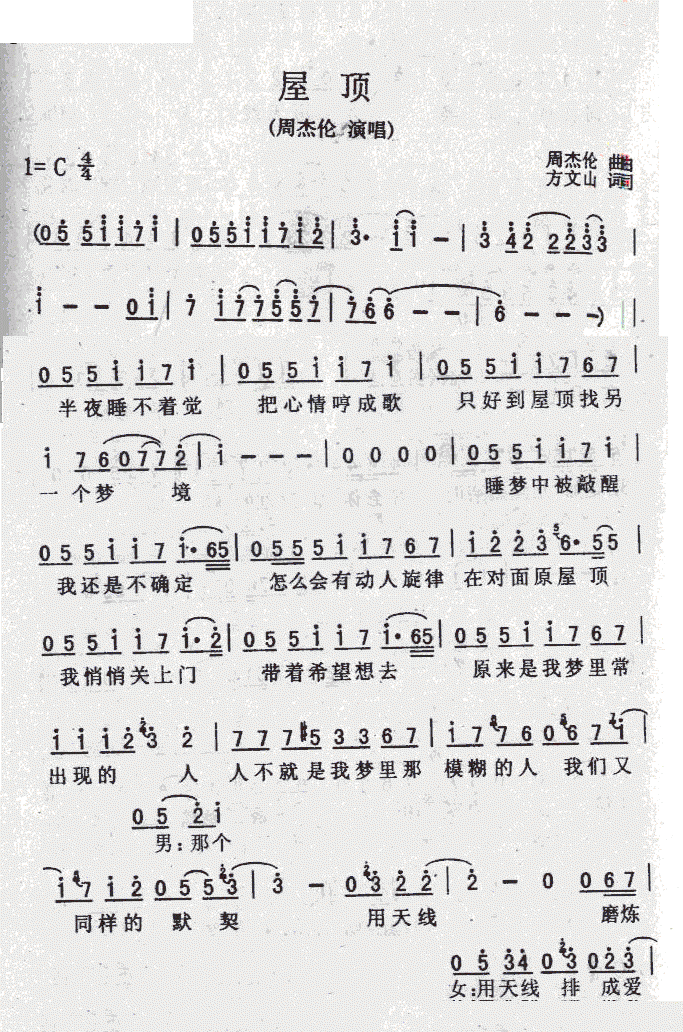 屋 顶
(周杰伦 演唱)
1= C 4/4
周杰伦 曲
方文山 词
(05 51171 | 05511712 | 3· 11 — | 3 42 2233 |
1 — — 01 | 7 177557 | 766 — — | 6 — — —) |
055117 1 | 055117 1 | 0551167 67 |
半夜睡不着觉 把心情哼成歌 只好到屋顶找另
1 760772 | 1 — — — | 0 0 0 0 | 055117 1
一 个梦 境 睡梦中被敲醒
055117 1·65 | 0555117 67 | 1223 6·55 |
我还是不确定 怎么会有动人旋律 在对面原屋 顶
055117 1·2 | 055117 1·65 | 05511767 |
我悄悄关上门 带着希望想去 原来是我梦里常
1112 3 2 | 777#5 3367 | 17 76 06 71 |
出现的 人 人不就是我梦里那 模糊的人 我们又
05 21
男:那个
17 12 05 53 | 3 — 03 22 | 2 — 0 067 |
同样的 默 契 用天线 磨炼
05 34 03 023 |
女:用天线 排 成爱